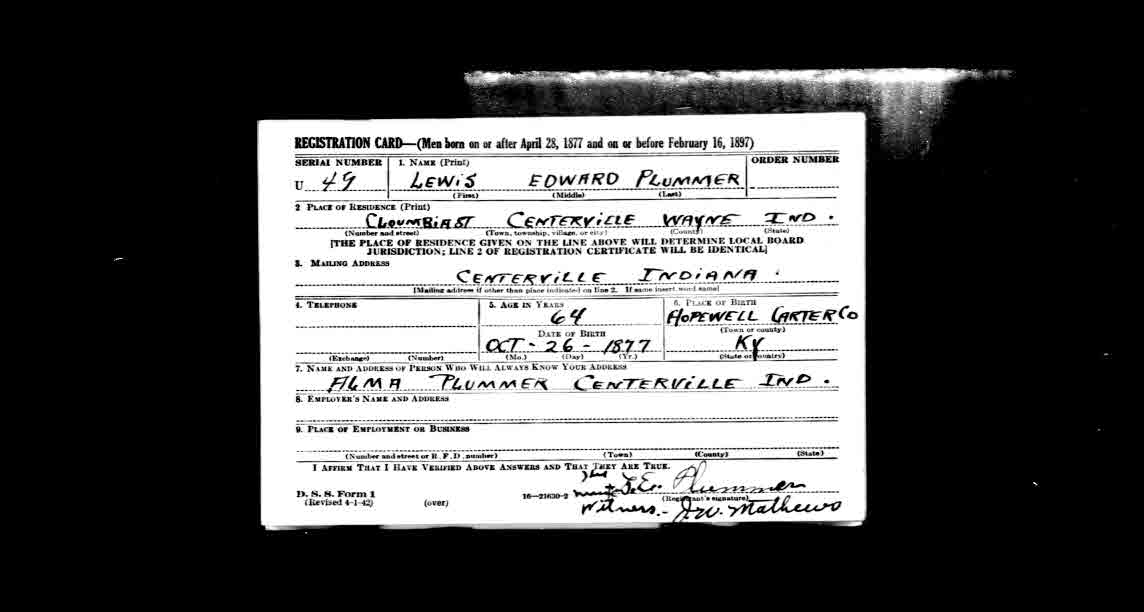 REGISTRATION CARD—(Men born on or after April 28, 1877 and on or before February 16, 1897)
SERIAL NUMBER 1. NAME (Print) ORDER NUMBER
U 49 LEWIS EDWARD PLUMMER
(First) (Middle) (Last)
2 PLACE OF RESIDENCE (Print)
CLOUMBIA ST CENTERVILLE WAYNE IND.
(Number and street) (Town, township, village, or city) (County) (State)
[THE PLACE OF RESIDENCE GIVEN ON THE LINE ABOVE WILL DETERMINE LOCAL BOARD
JURISDICTION; LINE 2 OF REGISTRATION CERTIFICATE WILL BE IDENTICAL]
3. MAILING ADDRESS
CENTERVILLE INDIANA.
[Mailing address if other than place indicated on line 2. If same insert word same]
4. TELEPHONE 5. AGE IN YEARS 6. PLACE OF BIRTH
64 HOPEWELL CARTER CO
DATE OF BIRTH (Town or county)
OCT - 26 - 1877 KY
(Exchange) (Number) (Mo.) (Day) (Yr.) (State or country)
7. NAME AND ADDRESS OF PERSON WHO WILL ALWAYS KNOW YOUR ADDRESS
ALMA PLUMMER CENTERVILLE IND.
8. EMPLOYER'S NAME AND ADDRESS
9. PLACE OF EMPLOYMENT OR BUSINESS
(Number and street or R. F. D. number) (Town) (County) (State)
I AFFIRM THAT I HAVE VERIFIED ABOVE ANSWERS AND THAT THEY ARE TRUE.
Plummer
D. S. S. Form 1 16—21630-2 (Registrant's signature)
(Revised 4-1-42) (over)
Witness.- J.W. Mathews